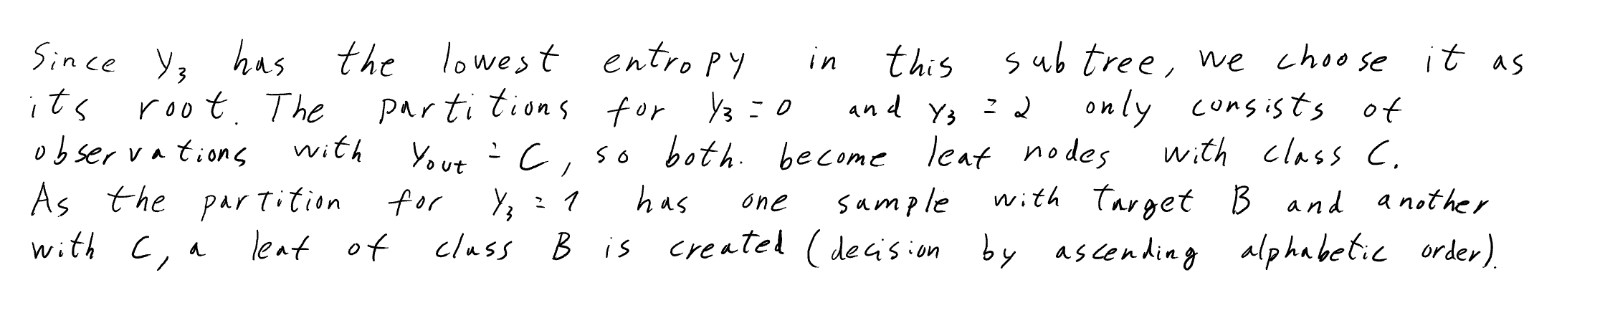 Since y₃ has the lowest entropy in this subtree, we choose it as
its root. The partitions for y₃ = 0 and y₃ = 2 only consists of
observations with yout = C, so both. become leaf nodes with class C.
As the partition for y₃ = 1 has one sample with Target B and another
with C, a leaf of class B is created (decision by ascending alphabetic order).